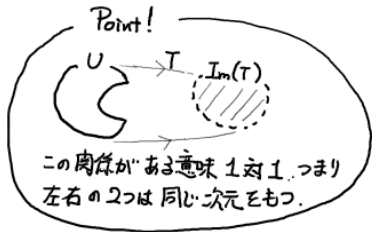 Point!
U T Im(T)
この関係がある意味1対1.つまり
左右の2つは同じ次元をもつ.